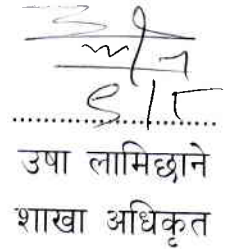 उषा लामिछाने
शाखा अधिकृत